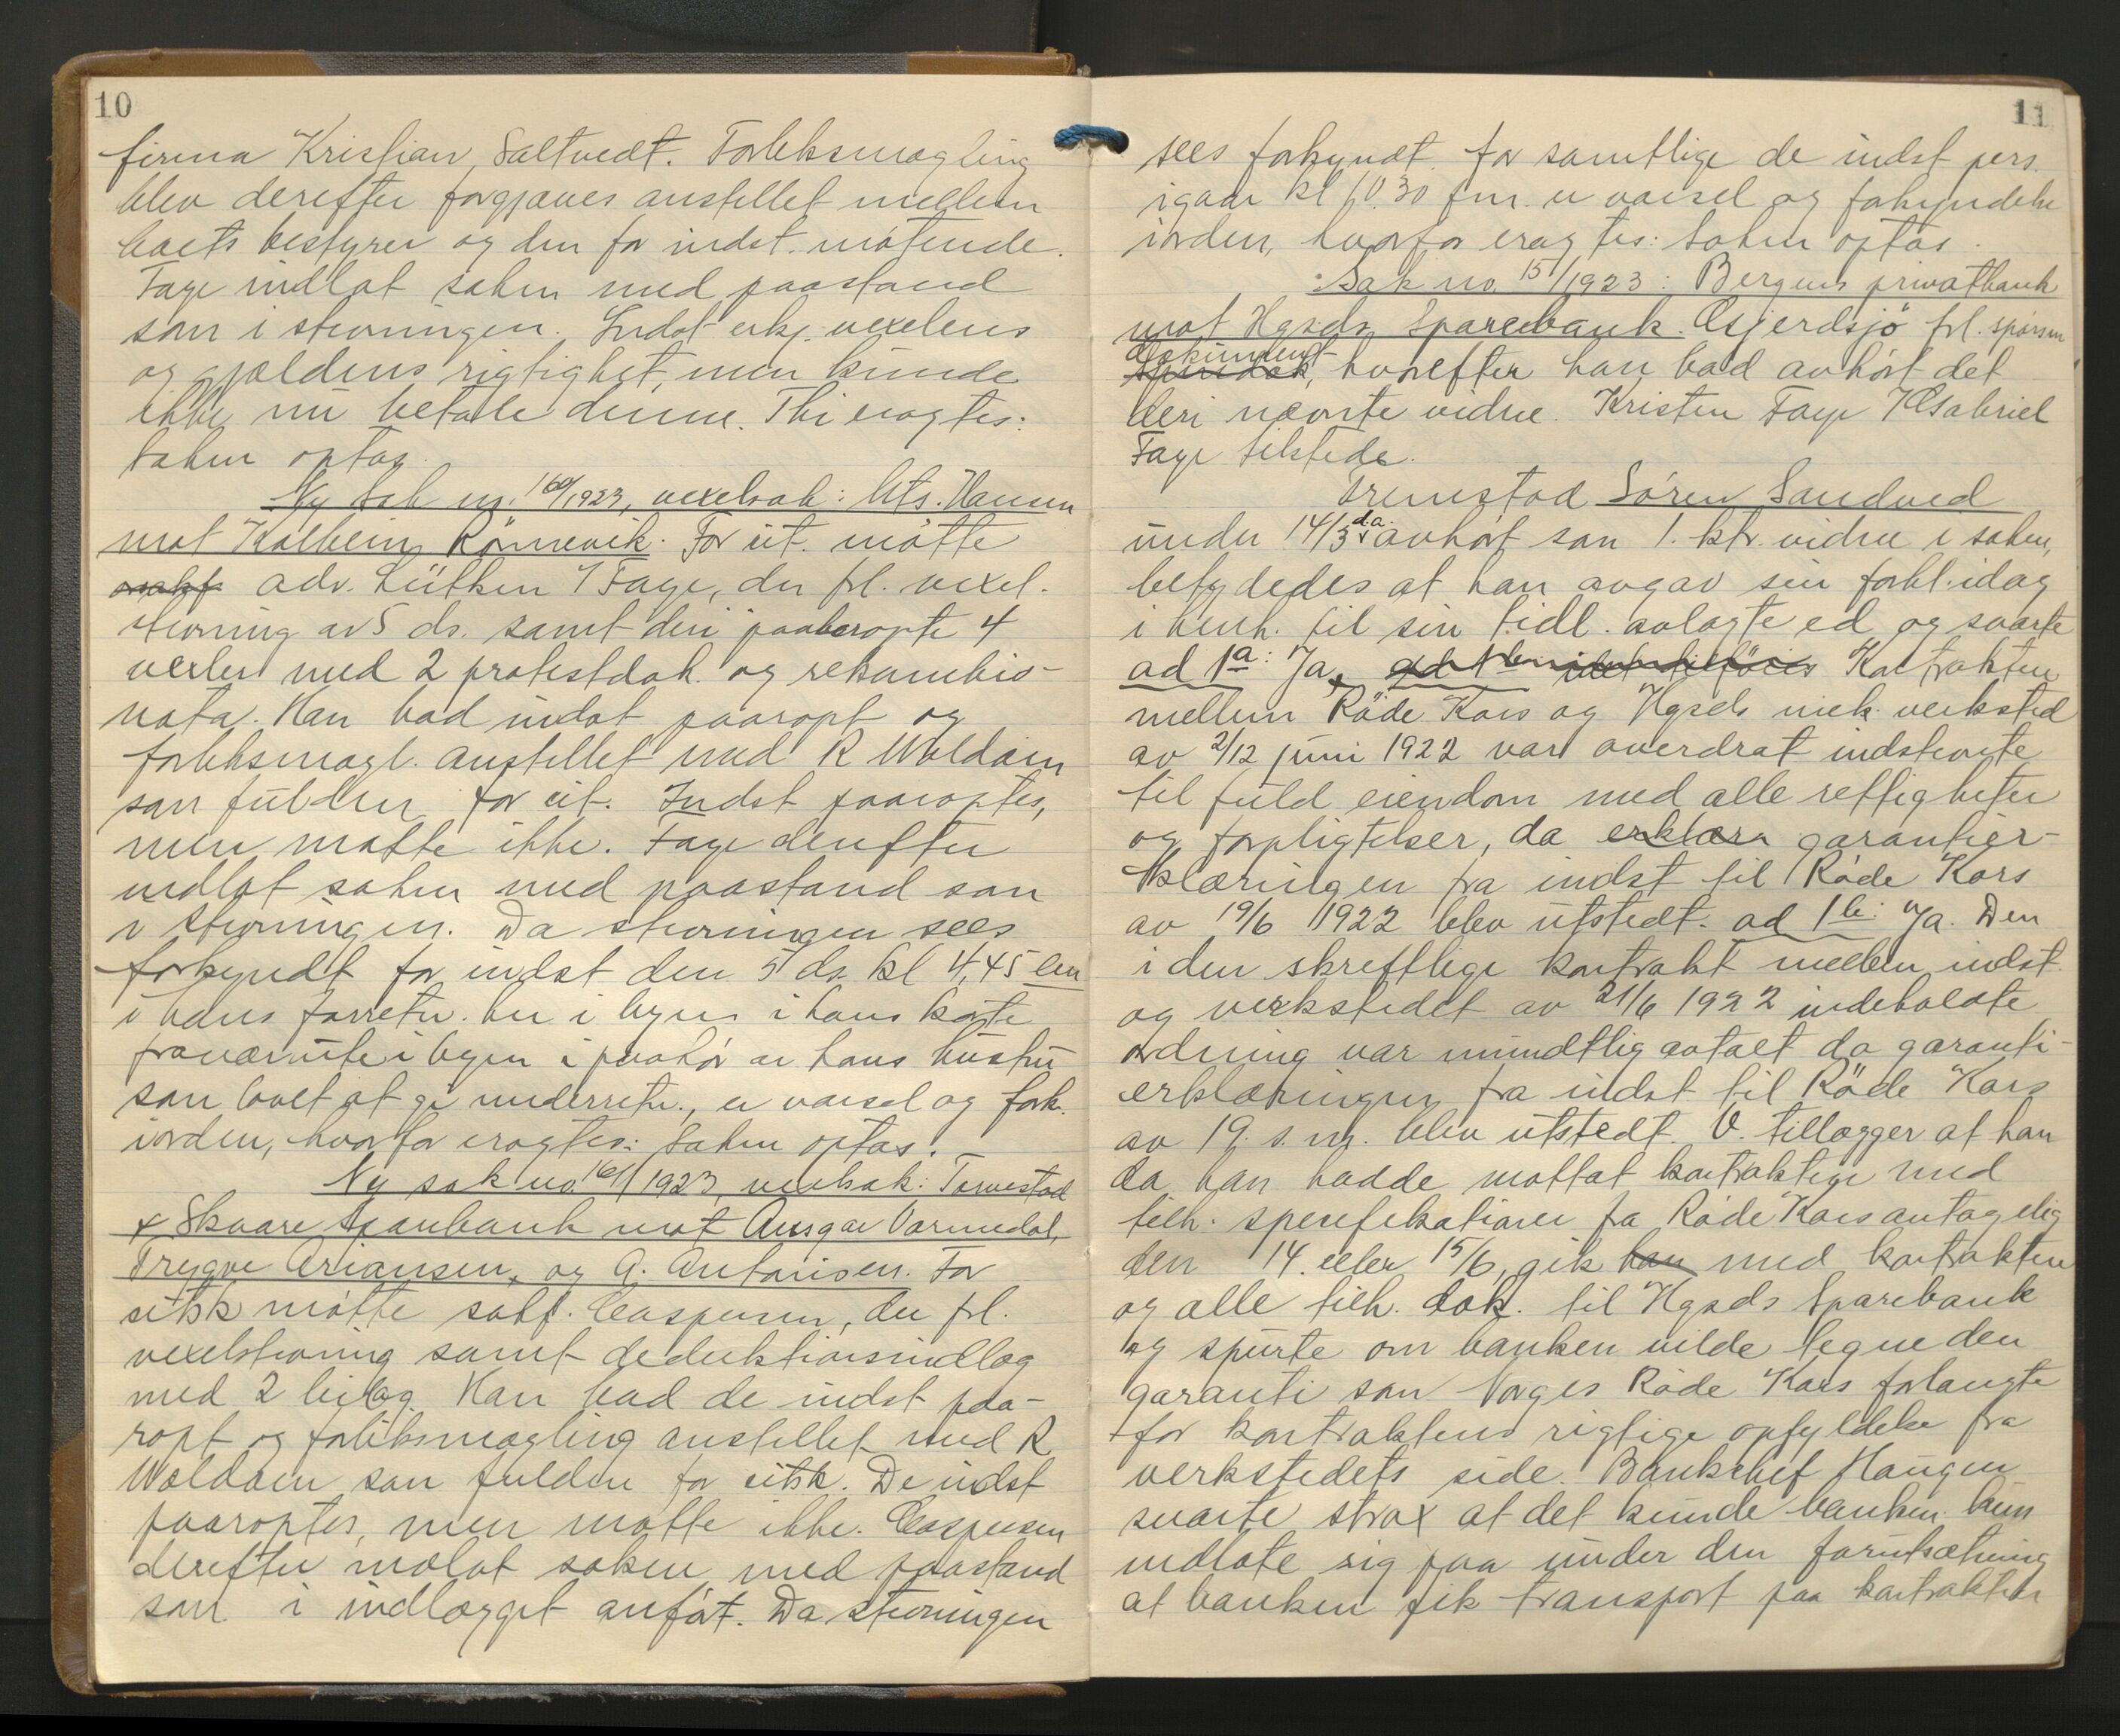 10
firma Kristian Saltvedt. Forliksmægling
blev derefter forgjæves anstillet mellem
boets bestyrer og den for indst. møtende.
Faye indlot saken med paastand
som i stevningen. Indst erkj. vexelens
og gjældens rigtighet, men kunde
ikke nu betale denne. Thi eragtes:
Saken optas.
Ny sak no. 160/1923, vexelsak: Chr. Hansen
mot Kolbein Rönnevik. For cit. møtte
adv. Lütken v/ Faye, der frl. vexel-
stevning av 5 ds. samt deri paaberopte 4
vexler med 2 protestdok. og rekambio-
nota. Han bad indst paaropt og
forliksmægl. anstillet med R Woldain
som fuldm for cit. Indst paaroptes,
men møtte ikke. Faye derefter
indlot saken med paastand som
i stevningen. Da stevningen sees
forkyndt for indst den 5 ds. kl 4,45 em
i hans forretn. her i byen i hans korte
fravær ute i byen i paahør av hans hustru
som lovet at gi underretn., er varsel og fork.
iorden, hvorfor eragtes: Saken optas.
Ny sak no. 161/1923, vexelsak: Torvestad
& Skaare Sparebank mot Ansgar Varmedal,
Trygve Eriansen, og A. Antonisen. For
citsk møtte sakf. Caspersen, der frl.
vexelstevning samt deduktionsindlæg
med 2 bilag. Han bad de indst paa-
ropt og forliksmægling anstillet med R
Woldain som fuldm for citsk. De indst
paaroptes, men møtte ikke. Caspersen
derefter indlot saken med paastand
som i indlægget anført. Da stevningen
11
sees forkyndt for samtlige de indst pers.
igaar kl 10.30 fm. er varsel og forkyndelse
iorden, hvorfor eragtes: Saken optas.
Sak no. 15/1923: Bergens privatbank
mot Hgsds Sparebank. Gjerdsjø frl. spørsm
dokument, hvorefter han bad avhørt det
deri nævnte vidne. Kristen Faye v/ Gabriel
Faye tilstede.
Fremstod Søren Sandved
under 14/3 d.a. avhørt som 1. ktr. vidne i saken,
betydedes at han avgav sin forkl. idag
i henh. til sin tidl. avlagte ed og svarte
ad 1a: Ja, Kontrakten
mellem Røde Kors og Hgsds mek. verksted
av 2/12 juni 1922 var overdrat indstevnte
til fuld eiendom med alle rettigheter
og forpligtelser, da erklær garantier-
klæringen fra indst til Røde Kors
av 19/6 1922 blev utstedt. ad 1b: Ja. Den
i den skriftlige kontrakt mellem indst.
og verkstedet av 21/6 1922 indeholdte
ordning var mundtlig avtalt da garanti-
erklæringen fra indst til Røde Kors
av 19. s. m. blev utstedt. V. tillægger at han
da han hadde mottat kontrakten med
tilh. spesifikationer fra Røde Kors antagelig
den 14. eller 15/6, gik han med kontrakten
og alle tilh. dok. til Hgsds Sparebank
og spurte om banken vilde tegne den
garanti som Norges Røde Kors forlangte
for kontraktens rigtige opfyldelse fra
verkstedets side. Bankchef Haugen
svarte strax at det kunde banken kun
indlate sig paa under den forutsætning
at banken fik transport paa kontrakten